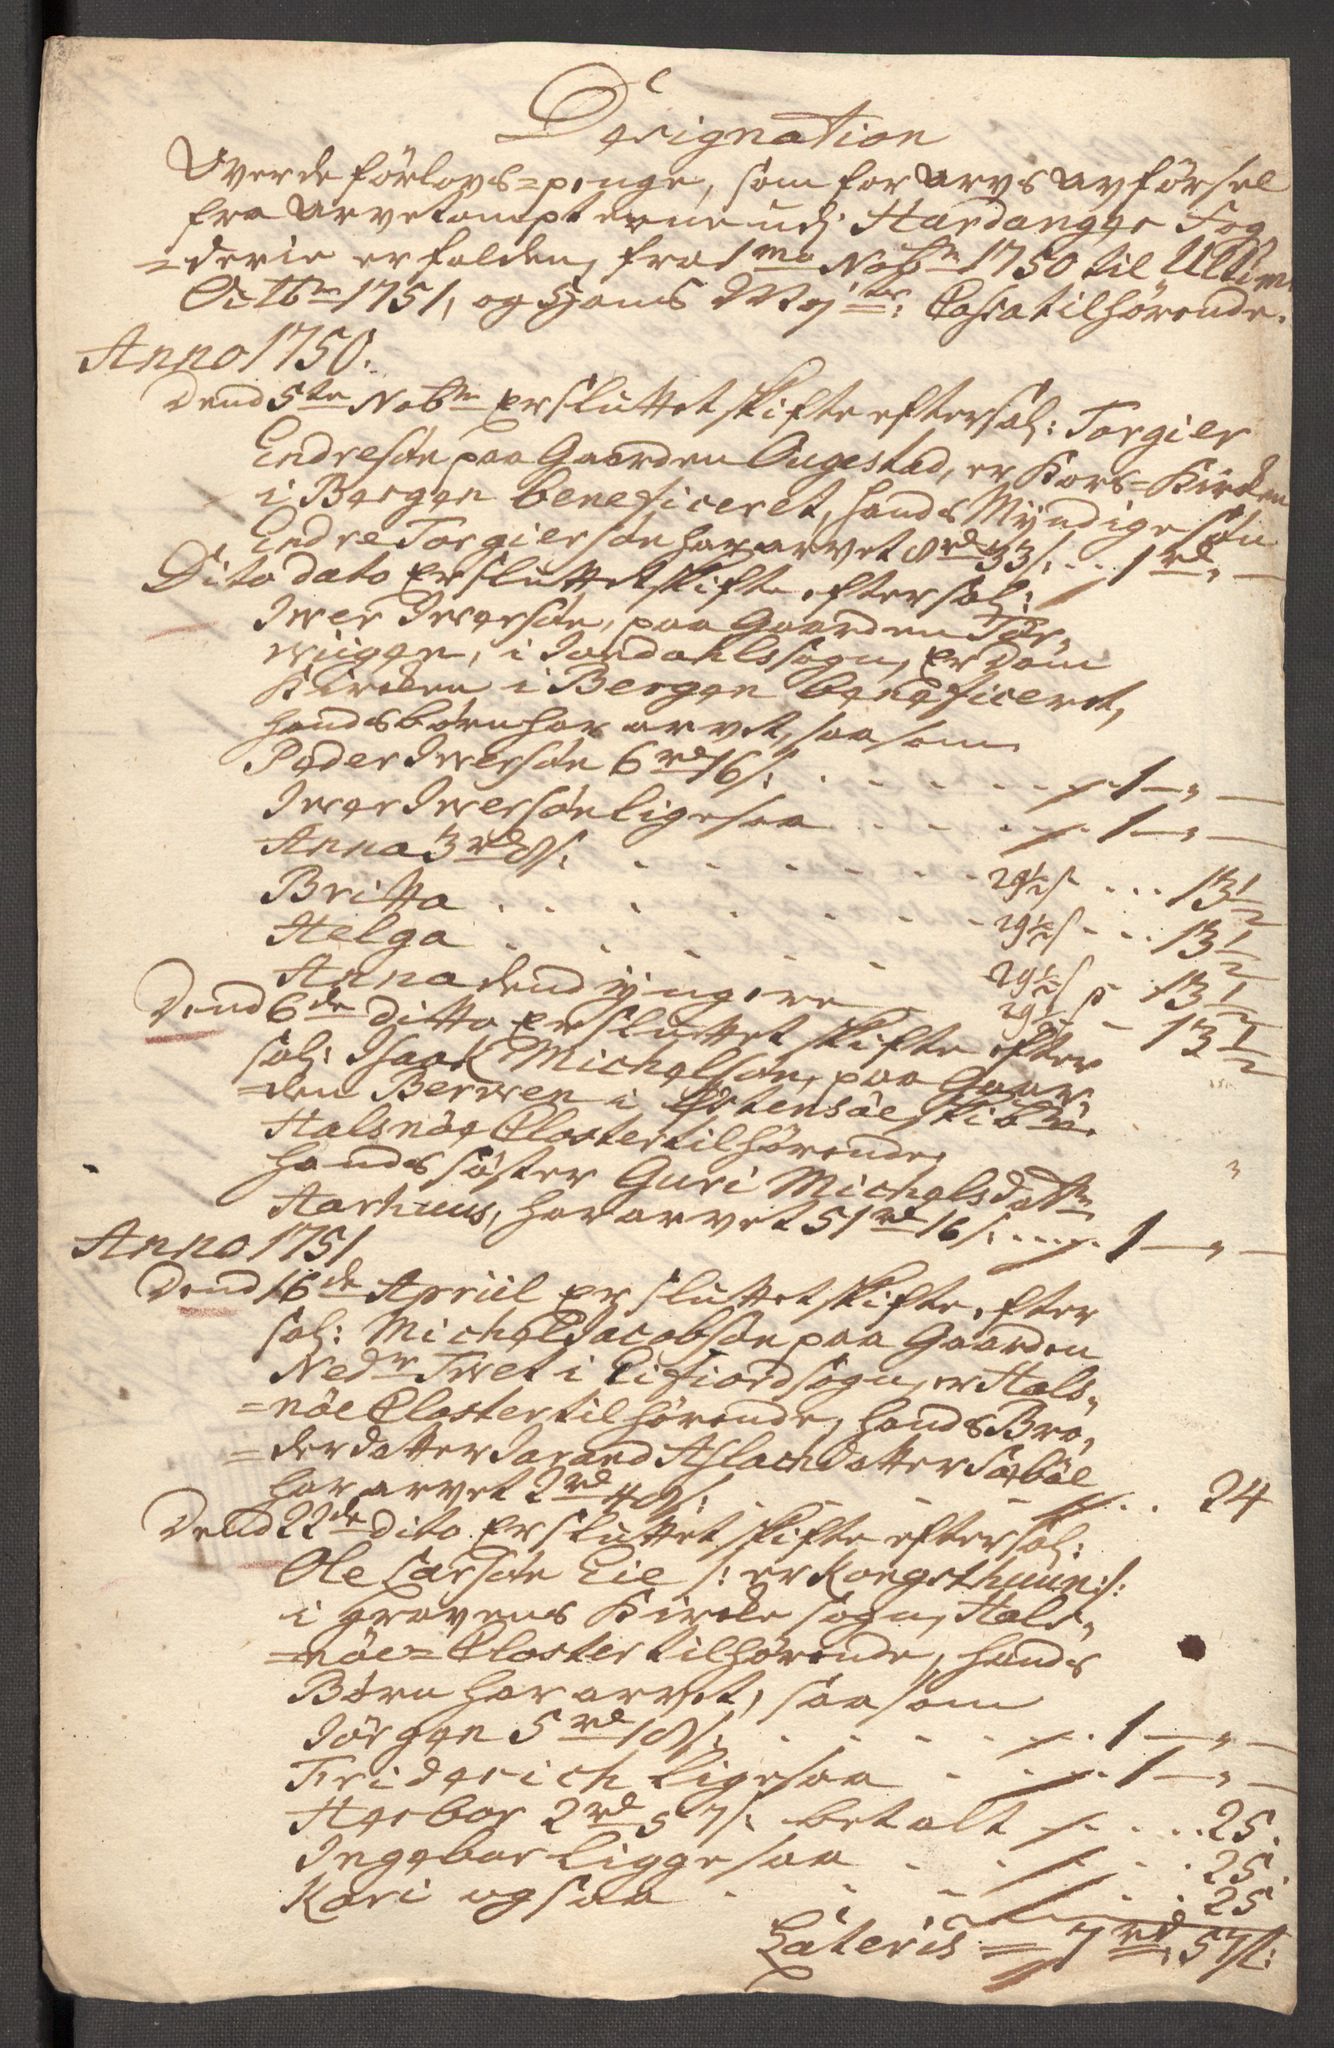 Designation
Over de förlovs=penge, som for Arvs Avförsel
fra Arvetompterne udj Hardanger Fog
=derie er falden, fra 1mo Nobr 1750 til Ultim
Octbr 1751, og Hans May:ts Cassa tilhörende.
Anno 1750.
Dend 5te Nobr er sluttet skifte efter sal: Torgier
Endresön paa Gaarden Augestad, er Kors=Kirken
i Bergen beneficeret, hands Myndige sön
Endre Torgiersön har arvet 8rd 33s: . . . 1rd " —
Dito dato er sluttet skifte efter sal:
Iwer Iwersön, paa Gaarden Tor-
wiigen, i Jondahls sogn, er Dom
Kirken i Bergen beneficeret,
hands börn har arvet, saasom
Peder Iwersön 6rd 16s: . . . . . . 1 — " —
Iwer Iwersön ligesaa . . . . . 1 — " —
Anna 3rd 8s: . . . . . . . 29½s . . . 13½
Britta . . . . . . . . 29½s . . . 13½
Helga . . . . . . 29½s . 13½
Anna dend yngere 29½s — 13½
Dend 6de ditto er sluttet skifte efter
sal: Isaak Michelsön, paa Gaar-
=den Berven i Östensöe Skibr:
Halsnöe Closter tilhörende
hands söster Guri Michelsdattr
Aarhuus, har arvet 51rd 16s: . . . . 1 — " —
Anno 1751
Dend 16de Apriil er sluttet skifte efter
sal: Michel Jacobsön paa Gaarden
Nedr Twet i Eifiord sogn, er Hals-
=nöe Closter tilhörende, hands Bro-
=derdatter Jorand Aslachdatter Sæböe
har arvet 2rd 48s: . . . . . . 24
Dend 22de dito er sluttet skifte efter sal:
Ole Larsön Eie /: er Kongsthuun :/:
i Gravens Kirke sogn, Hals-
=nöe=Closter tilhörende, hands
Börn har arvet, saasom
Jörgen 5rd 18s: . . . . . . 1 — " —
Friderich ligesaa . . . . 1 — " —
Herbor 2rd 57s: betalt . . . . 25.
Ingebor liggesaa . . . . . 25.
Kari ogsaa . . . . . . 25
Lateris = 7rd: 57s: